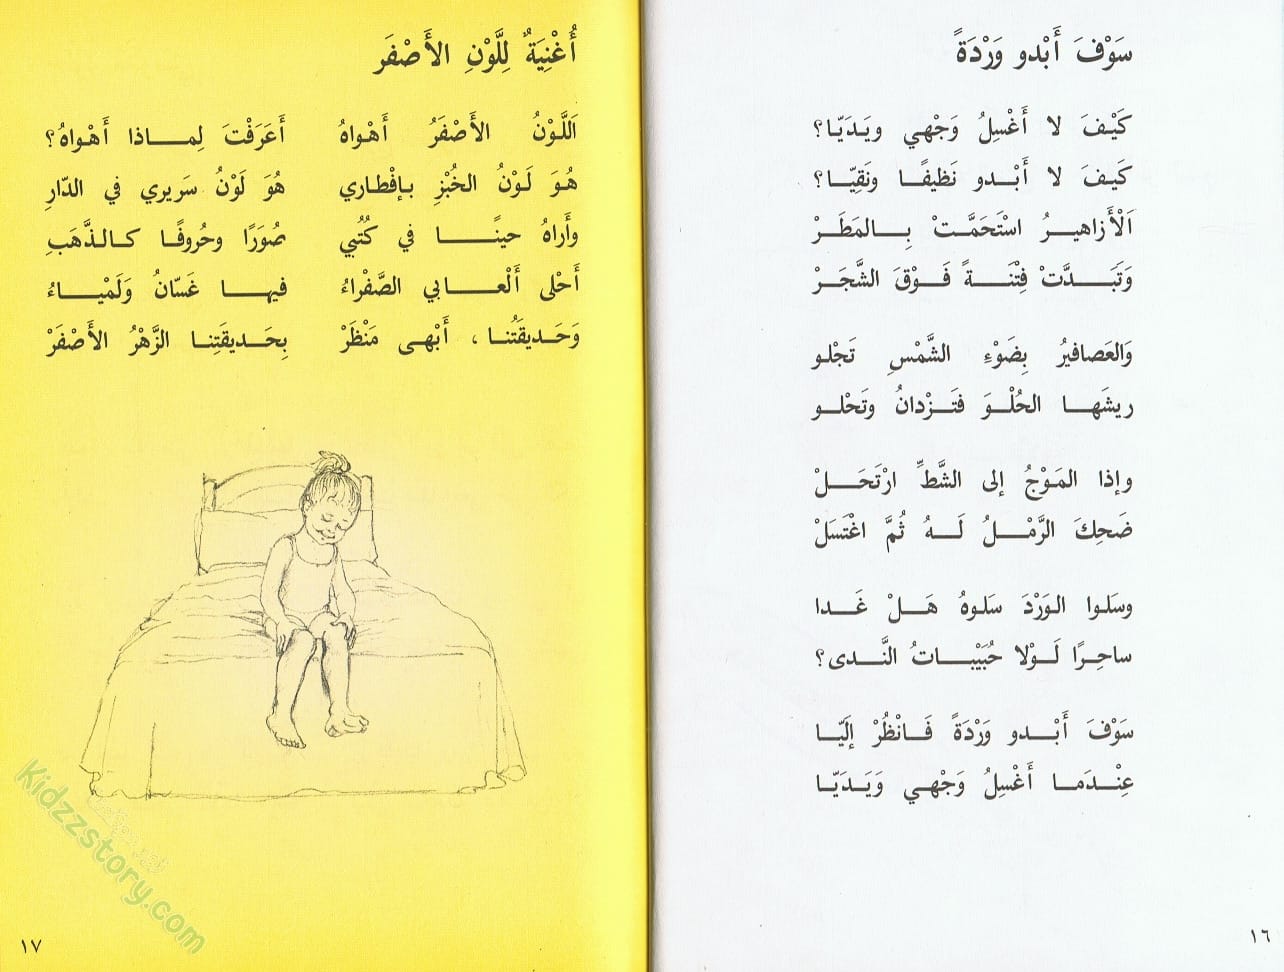 سَوْفَ أَبْدو وَرْدَةً
كَيْفَ لا أَغْسِلُ وَجْهي ويَدَيّا؟
كَيْفَ لا أَبْدو نَظيفًا ونَقِيّا؟
اَلْأَزاهيرُ اسْتَحَمَّتْ بِالمَطَرْ
وَتَبَدَّتْ فِتْنَةً فَوْقَ الشَّجَرْ
وَالعَصافيرُ بِضَوْءِ الشَّمْسِ تَجْلو
ريشَها الحُلْوَ فَتَزْدانُ وتَحْلو
وإذا المَوْجُ إلى الشَّطِّ ارْتَحَلْ
ضَحِكَ الرَّمْلُ لَهُ ثُمَّ اغْتَسَلْ
وسَلوا الوَرْدَ سَلوهُ هَلْ غَدا
ساحِرًا لَوْلا حُبَيْباتُ النَّدى؟
سَوْفَ أَبْدو وَرْدَةً فَانْظُرْ إلَيّا
عِنْدَما أَغْسِلُ وَجْهي وَيَدَيّا
١٦
أُغْنِيَةٌ لِلَّوْنِ الأَصْفَرَ
اَللَّوْنُ الأَصْفَرُ أَهْواهُ أَعَرَفْتَ لِماذا أَهْواهُ؟
هُوَ لَوْنُ الخُبْزِ بإفْطاري هُوَ لَوْنُ سَريري في الدّارِ
وأَراهُ حينًا في كُتُبي صُوَرًا وحُروفًا كالذَّهَبِ
أَحْلى أَلْعابي الصَّفْراءُ فيها غَسّانُ وَلَمْياءُ
وَحَديقَتُنا، أَبْهى مَنْظَرْ بِحَديقَتِنا الزَّهْرُ الأَصْفَرْ
Kidzzstory.com
١٧